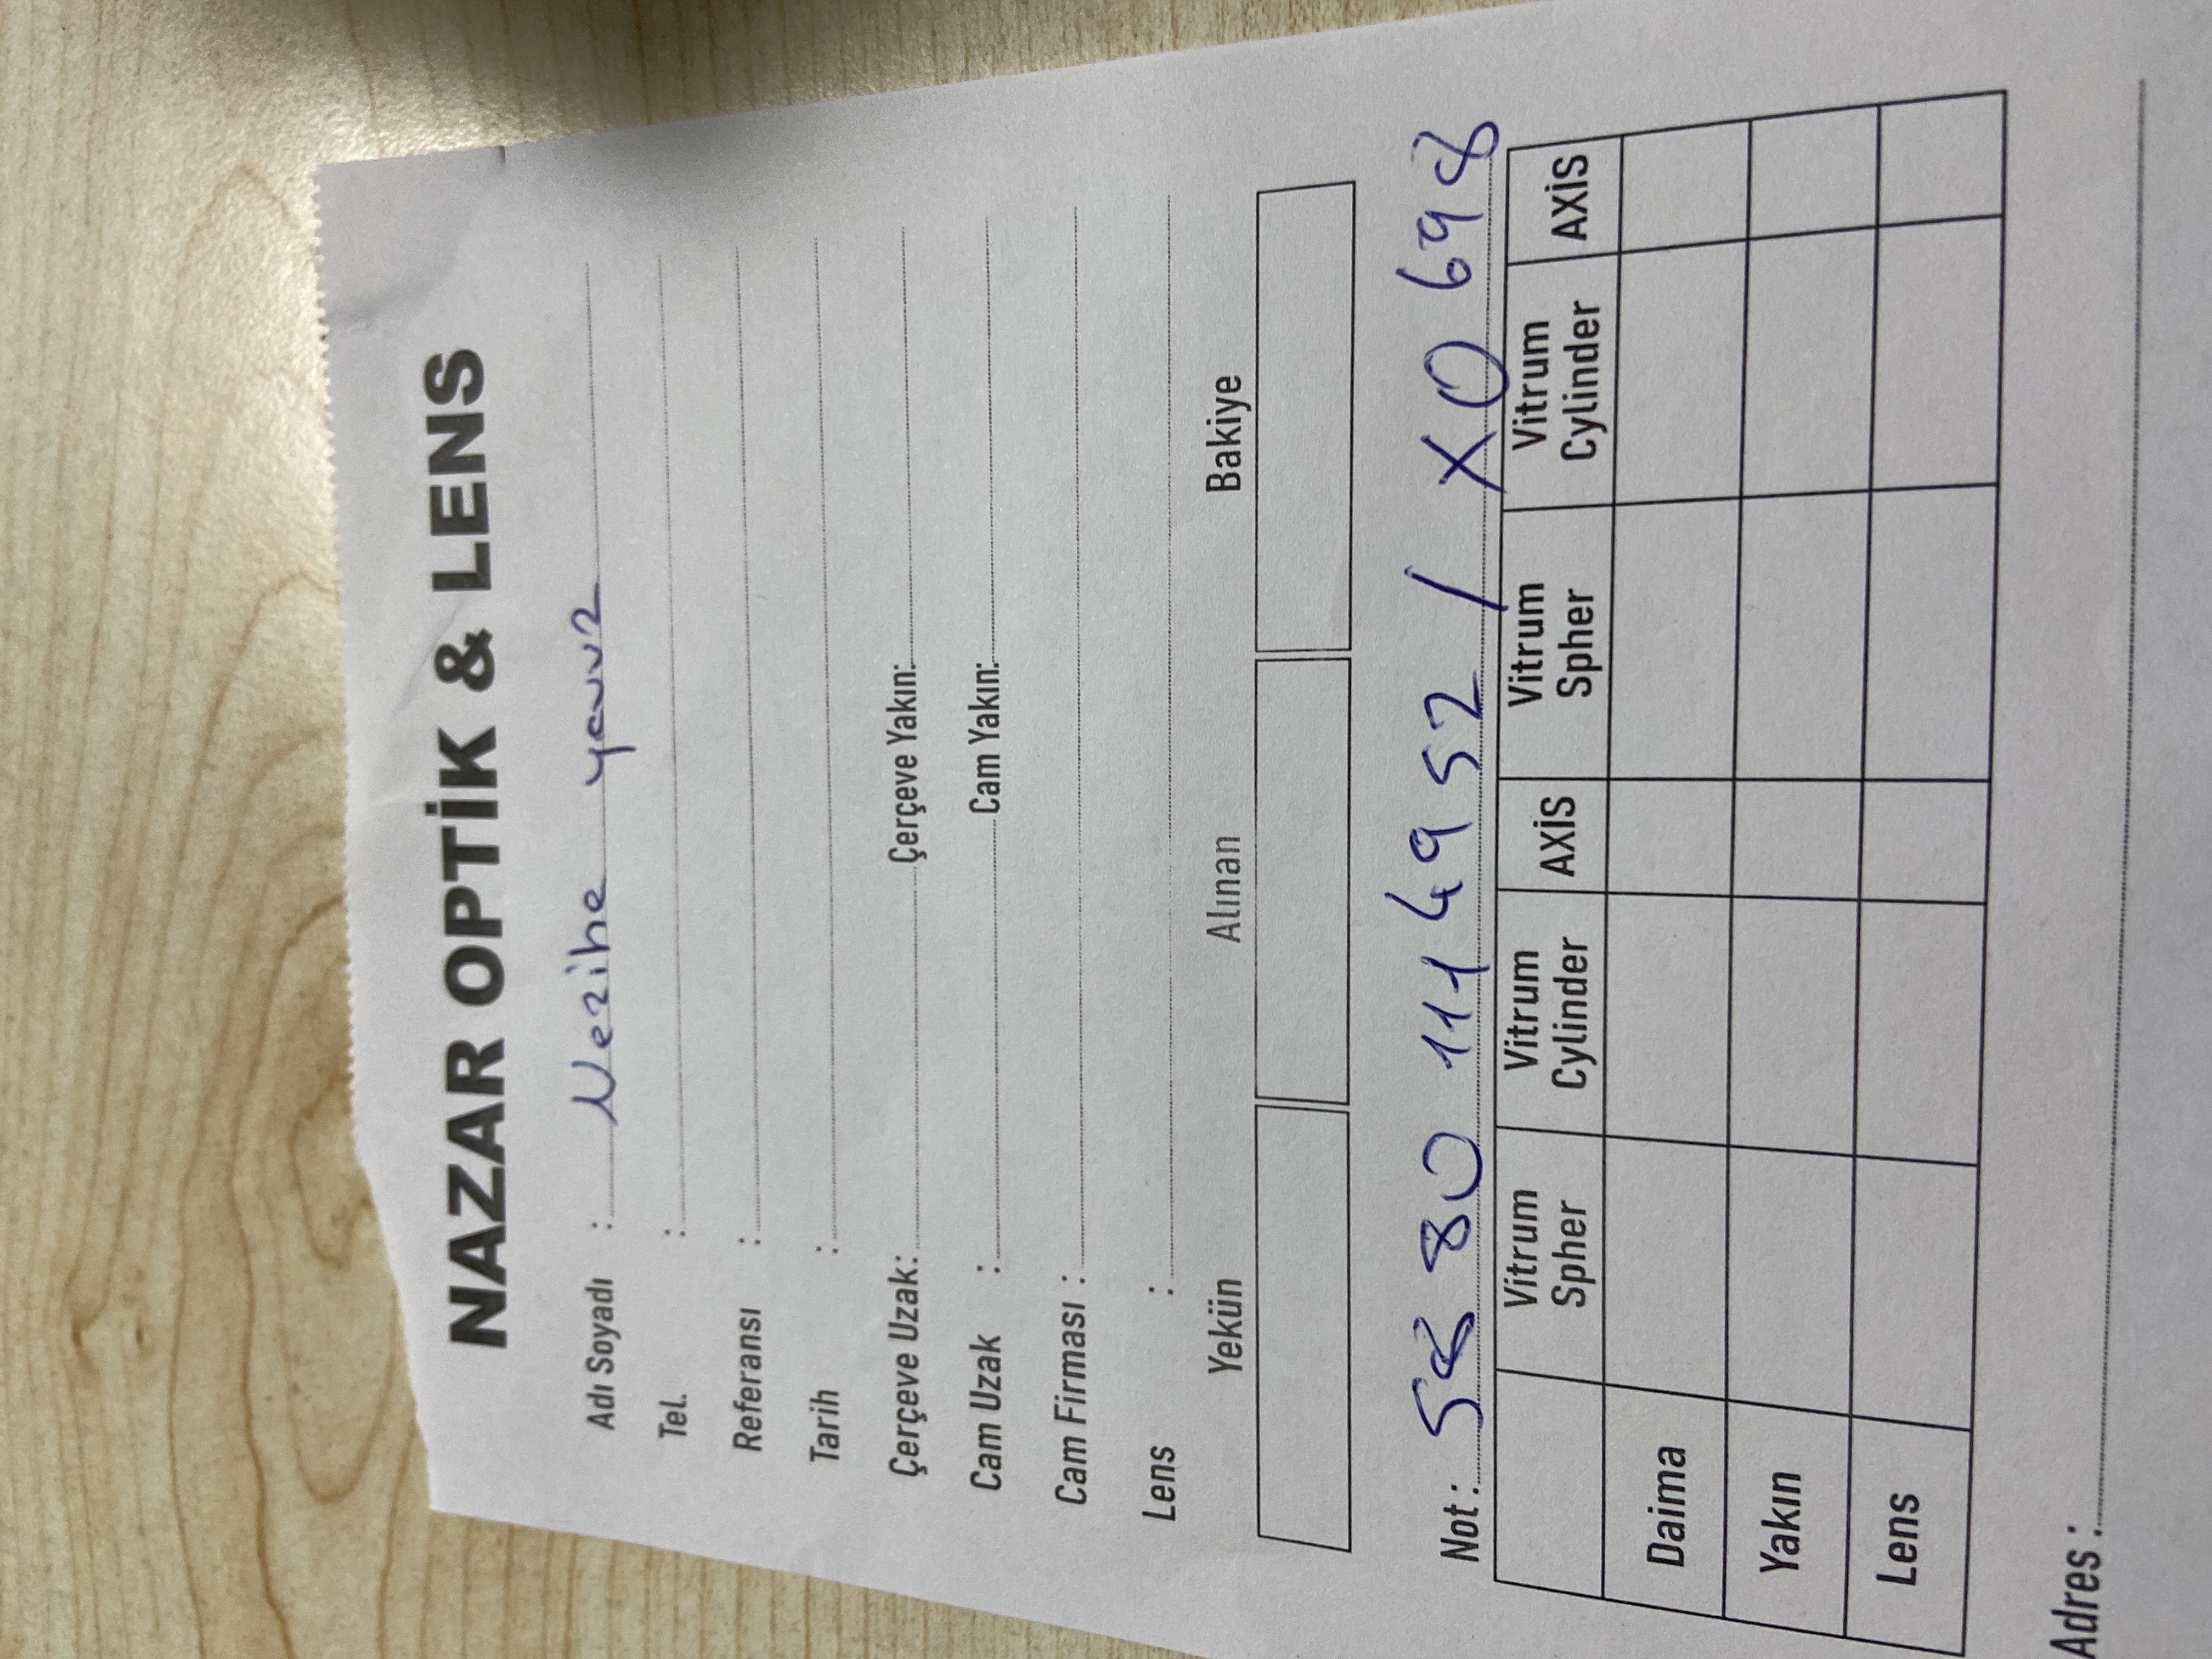 NAZAR OPTİK & LENS
Adı Soyadı : Nezihe yavuz
Tel. :
Referansı :
Tarih :
Çerçeve Uzak: Çerçeve Yakın:
Cam Uzak : Cam Yakın:
Cam Firması :
Lens :
Yekün Alınan Bakiye
Not : 58 80 111 49 52 / XO 698
Vitrum Spher Vitrum Cylinder AXİS Vitrum Spher Vitrum Cylinder AXİS
Daima
Yakın
Lens
Adres :